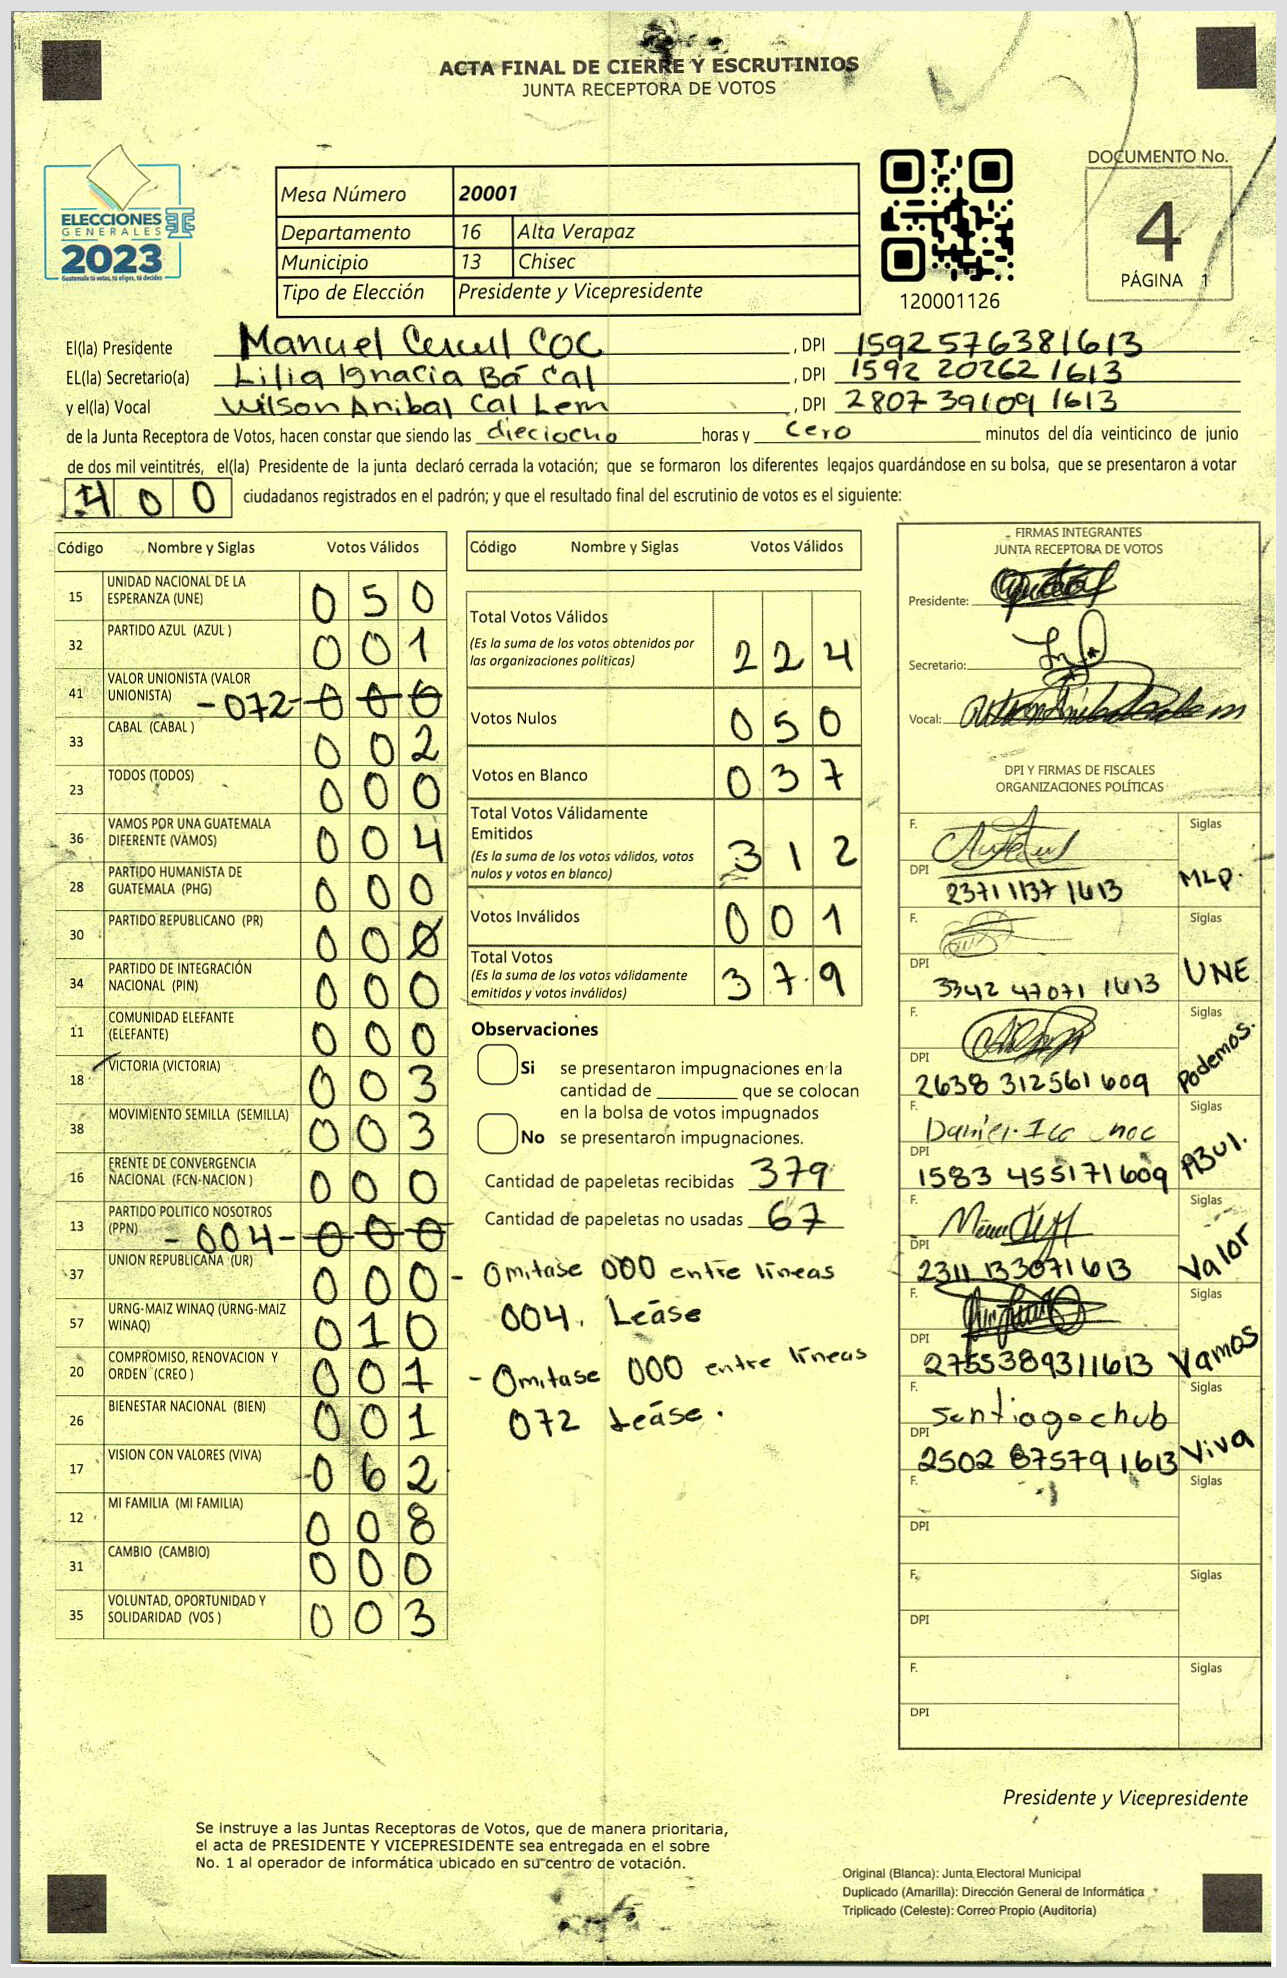 ACTA FINAL DE CIERRE Y ESCRUTINIOS
JUNTA RECEPTORA DE VOTOS
ELECCIONES
GENERALES
2023
Guatemala tú votas, tú eliges, tú decides
Mesa Número 20001
Departamento 16 Alta Verapaz
Municipio 13 Chisec
Tipo de Elección Presidente y Vicepresidente
120001126
DOCUMENTO No.
4
PÁGINA 1
El(la) Presidente Manuel COC , DPI 1592 57638 1613
EL(la) Secretario(a) Lilia Ignacia Bá Cal , DPI 1592 20262 1613
y el(la) Vocal Wilson Anibal Cal Lem , DPI 2807 39109 1613
de la Junta Receptora de Votos, hacen constar que siendo las dieciocho horas y cero minutos del día veinticinco de junio
de dos mil veintitrés, el(la) Presidente de la junta declaró cerrada la votación; que se formaron los diferentes legajos guardándose en su bolsa, que se presentaron a votar
400 ciudadanos registrados en el padrón; y que el resultado final del escrutinio de votos es el siguiente:
Código Nombre y Siglas Votos Válidos
15 UNIDAD NACIONAL DE LA ESPERANZA (UNE) 0 5 0
32 PARTIDO AZUL (AZUL ) 0 0 1
41 VALOR UNIONISTA (VALOR UNIONISTA) -072- 0 0 0
33 CABAL (CABAL ) 0 0 2
23 TODOS (TODOS) 0 0 0
36 VAMOS POR UNA GUATEMALA DIFERENTE (VAMOS) 0 0 4
28 PARTIDO HUMANISTA DE GUATEMALA (PHG) 0 0 0
30 PARTIDO REPUBLICANO (PR) 0 0 0
34 PARTIDO DE INTEGRACIÓN NACIONAL (PIN) 0 0 0
11 COMUNIDAD ELEFANTE (ELEFANTE) 0 0 0
18 VICTORIA (VICTORIA) 0 0 3
38 MOVIMIENTO SEMILLA (SEMILLA) 0 0 3
16 FRENTE DE CONVERGENCIA NACIONAL (FCN-NACION ) 0 0 0
13 PARTIDO POLITICO NOSOTROS (PPN) - 004 - 0 0 0
37 UNION REPUBLICANA (UR) 0 0 0
57 URNG-MAIZ WINAQ (URNG-MAIZ WINAQ) 0 1 0
20 COMPROMISO, RENOVACION Y ORDEN (CREO ) 0 0 1
26 BIENESTAR NACIONAL (BIEN) 0 0 1
17 VISION CON VALORES (VIVA) 0 6 2
12 MI FAMILIA (MI FAMILIA) 0 0 8
31 CAMBIO (CAMBIO) 0 0 0
35 VOLUNTAD, OPORTUNIDAD Y SOLIDARIDAD (VOS ) 0 0 3
Código Nombre y Siglas Votos Válidos
Total Votos Válidos
(Es la suma de los votos obtenidos por las organizaciones políticas) 2 2 4
Votos Nulos 0 5 0
Votos en Blanco 0 3 7
Total Votos Válidamente Emitidos
(Es la suma de los votos válidos, votos nulos y votos en blanco) 3 1 2
Votos Inválidos 0 0 1
Total Votos
(Es la suma de los votos válidamente emitidos y votos inválidos) 3 7 9
Observaciones
Si se presentaron impugnaciones en la
cantidad de ________ que se colocan
en la bolsa de votos impugnados
No se presentaron impugnaciones.
Cantidad de papeletas recibidas 379
Cantidad de papeletas no usadas 67
- Omitase 000 entre líneas
004. Leáse
- Omitase 000 entre líneas
072 Leáse.
FIRMAS INTEGRANTES
JUNTA RECEPTORA DE VOTOS
Presidente:
Secretario:
Vocal:
DPI Y FIRMAS DE FISCALES
ORGANIZACIONES POLÍTICAS
F. Siglas
DPI 2371 1137 1613 MLP.
F. Siglas
DPI 3342 47071 1613 UNE
F. Siglas
DPI 2638 31256 1609 Podemos.
F. Siglas
DPI 1583 45517 1609 Azul.
F. Siglas
DPI 2311 13307 1613 Valor
F. Siglas
DPI 2755 38931 1613 Vamos
F. Santiago chub Siglas
DPI 2502 87579 1613 Viva
F. Siglas
DPI
F. Siglas
DPI
F. Siglas
DPI
Presidente y Vicepresidente
Se instruye a las Juntas Receptoras de Votos, que de manera prioritaria,
el acta de PRESIDENTE Y VICEPRESIDENTE sea entregada en el sobre
No. 1 al operador de informática ubicado en su centro de votación.
Original (Blanca): Junta Electoral Municipal
Duplicado (Amarilla): Dirección General de Informática
Triplicado (Celeste): Correo Propio (Auditoría)